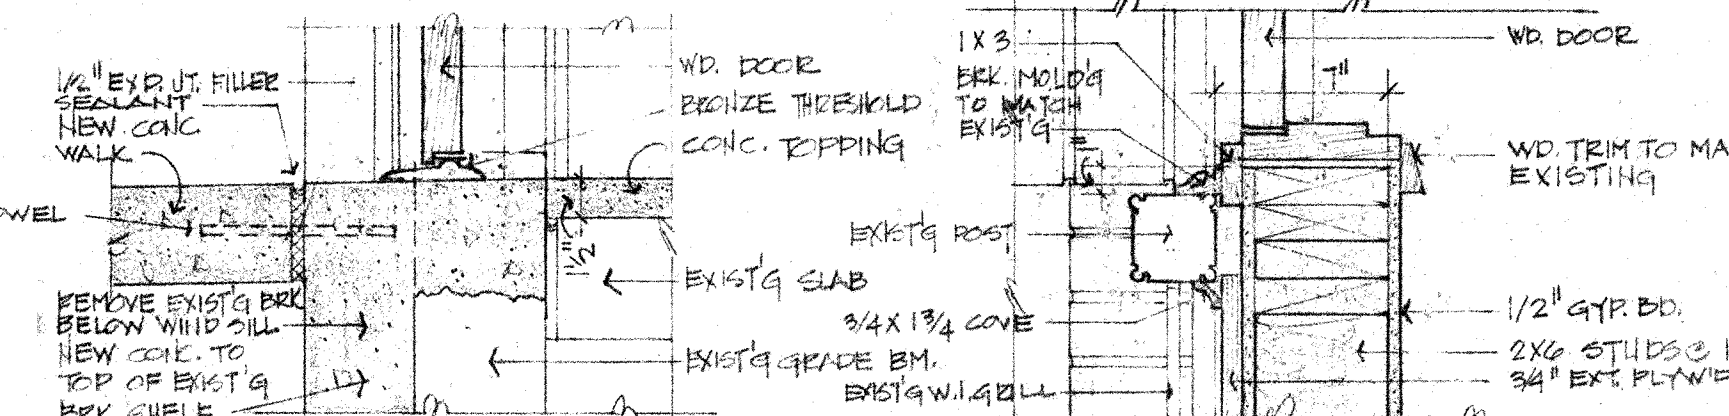 1/2" EXP. JT. FILLER
SEALANT
NEW CONC.
WALK
OWEL
REMOVE EXIST'G BRK
BELOW WIND SILL
NEW CONC. TO
TOP OF EXIST'G
BRK SHELF
WD. DOOR
BRONZE THRESHOLD
CONC. TOPPING
1 1/2"
EXIST'G SLAB
EXIST'G GRADE BM.
1 X 3
BRK. MOLD'G
TO MATCH
EXIST'G
EXIST'G POST
3/4 X 1 3/4 COVE
EXIST'G W.I. GRILL
7"
WD. DOOR
WD. TRIM TO MA
EXISTING
1/2" GYP. BD.
2X6 STUDS @
3/4" EXT. PLYW